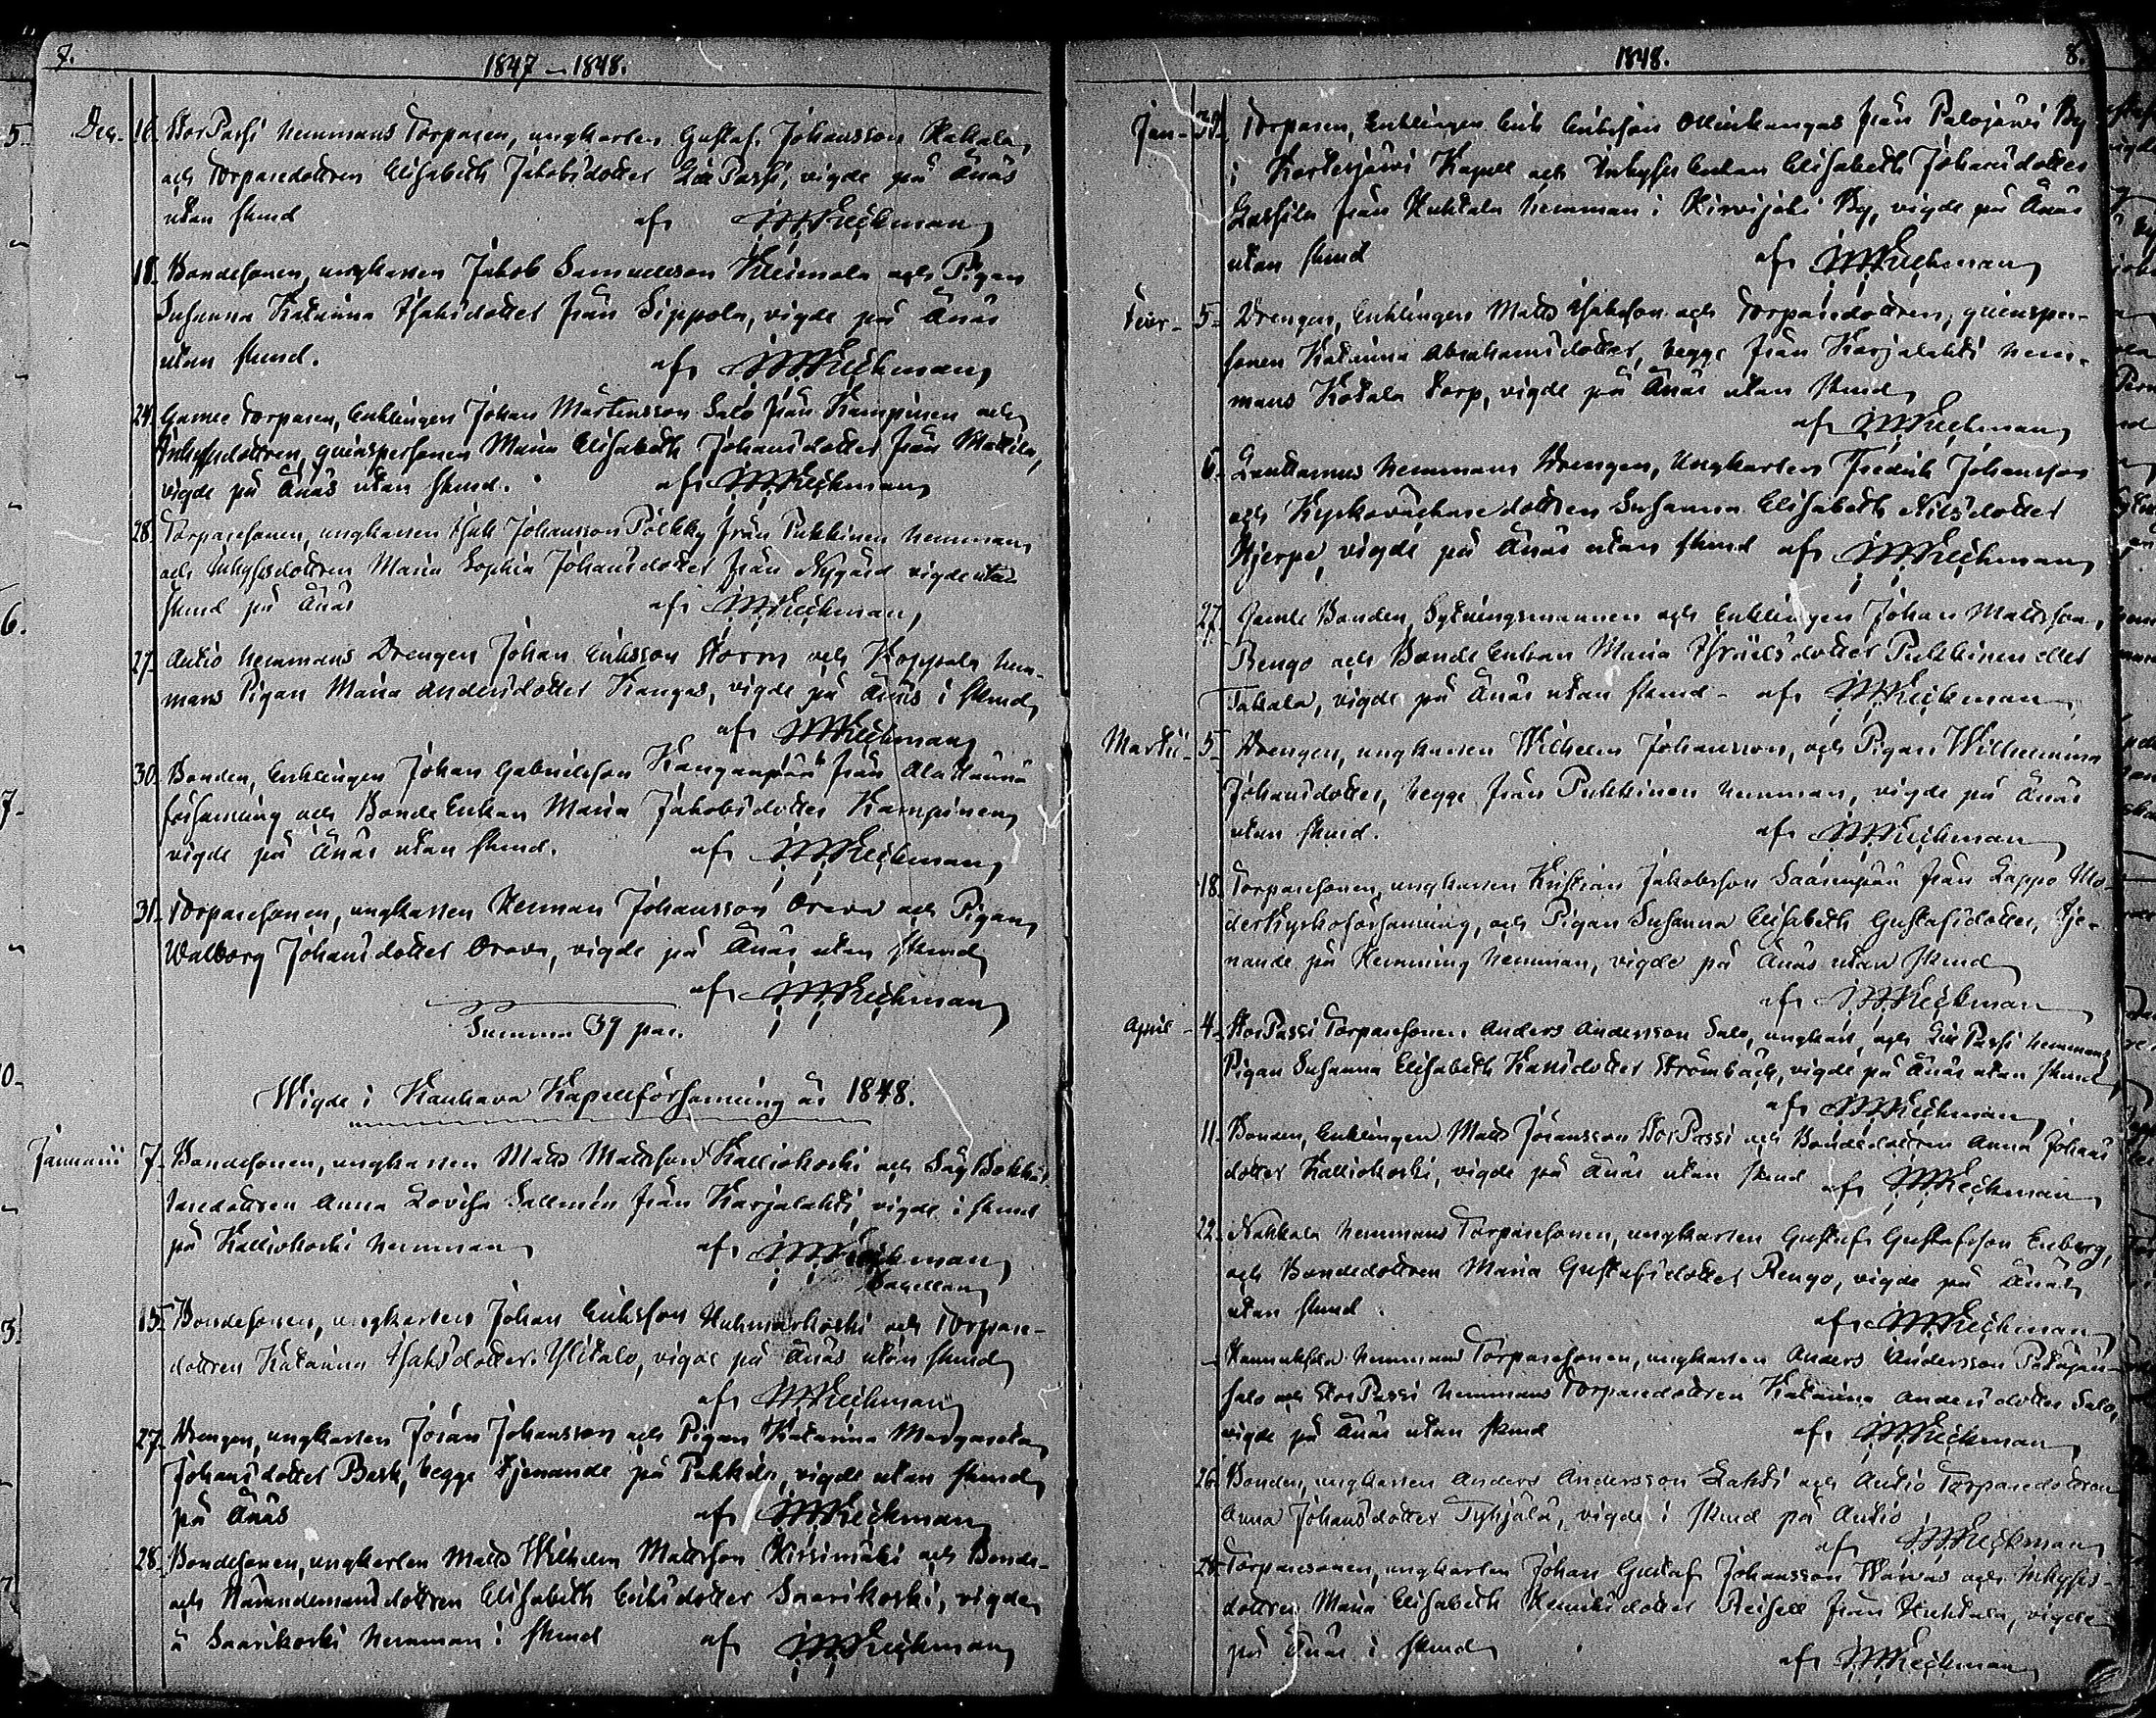 7.
1847 – 1848.
Dec. 16. StorPassi hemmans Torparen, ungkarlen Gustaf Johansson Hakala
och Torparedottren Elisabeth Jakobsdotter LillPassi, vigde på Änäs
utan skrud af
18. Bondesonen, ungkarlen Jakob Samuelsson Kleimola och Pigan
Susanna Katarina Isaksdotter från Sippola, vigde på Änäs
utan skrud. af
24. Gamle Torparen, Enklingen Johan Mårtensson Salo från Kampinen och
Inhysesdottren, qvinspersonen Maria Elisabeth Johansdotter från Mattila,
vigde på Änäs utan skrud. af
28. Torparesonen, ungkarlen Isak Johansson Pölkky från Pukkinen hemman
och Inhysesdottren Maria Sophia Johansdotter från Nygård vigde utan
skrud på Änäs af
27. Autio hemmans Drengen Johan Eriksson Storm och Koppala hem-
mans Pigan Maria Andersdotter Kangas, vigde på Änäs i skrud
af
30. Bonden, Enklingen Johan Gabrielsson Kanganpää från Alahärmä
församling och Bonde Enkan Maria Jakobsdotter Kampinen
vigde på Änäs utan skrud. af
31. Torparesonen, ungkarlen Herman Johansson Orava och Pigan
Walborg Johansdotter Orava, vigde på Änäs utan skrud
af
Summa 39 par.
Wigde i Kauhava Kapellförsamling år 1848.
Januarii 7. Bondesonen, ungkarlen Matts Mattsson Kalliokoski och
Anna Lovisa Sallmén från Karjalahti, vigde i skrud
på Kalliokoski hemman af
Capellan
15. Bondesonen, ungkarlen Johan Eriksson Huhmarkoski och Torpare-
dottren Katarina Isaksdotter Ylitalo, vigde på Änäs utan skrud
af
27. Drengen, ungkarlen Jöran Johansson och Pigan Katarina Margareta
Johansdotter Bask, begge tjenande på Pukkila, vigde utan skrud
på Änäs af
28. Bondesonen, ungkarlen Matts Wilhelm Mattsson Hirsimäki och Bonde-
och Nämndemansdottren Elisabeth Eriksdotter Saarikoski, vigde
å Saarikoski hemman i skrud af
1848. 8.
Jan. Torparen, Enklingen Erik Eriksson Ollinkangas från Palojärvi By
i Kortesjärvi Kapell och Inhyses Enkan Elisabeth Johansdotter
Lassila från Huhtala hemman i Hirvijoki By, vigde på Änäs
utan skrud af
5. Drengen, Enklingen Matts Isaksson och Torparedottren, qvinsper-
sonen Katarina Abrahamsdotter, begge från Karjalahti hem-
mans Kotala torp, vigde på Änäs utan skrud
af
6. Lanttamus hemmans Drengen, Ungkarlen Fredrik Johansson
och Kyrkoväktaredottren Susanna Elisabeth Nilsdotter
Hjerpe, vigde på Änäs utan skrud af
27. Gamle Bonden, Sytningsmannen och Enklingen Johan Mattsson
Rengo och Bonde Enkan Maria Israelsdotter Pukkinen eller
Takala, vigde på Änäs utan skrud af
Martii 5. Drengen, ungkarlen Wilhelm Johansson, och Pigan Wilhelmina
Johansdotter, begge från Pukkinen hemman, vigde på Änäs
utan skrud. af
18. Torparesonen, ungkarlen Kristian Jakobsson Saarenpää från Lappo Mo-
derkyrkoförsamling, och Pigan Susanna Elisabeth Gustafsdotter, tje-
nande på Hemming hemman, vigde på Änäs utan skrud
af
April 4. StorPassi Torparesonen Anders Andersson Salo, ungkarl, och LillPassi hemmans
Pigan Susanna Elisabeth Karlsdotter Strömbäck, vigde på Änäs utan skrud
af
11. Bonden, Enklingen Matts Jöransson StorPassi och Bondedottren Anna Johans
dotter Kalliokoski, vigde på Änäs utan skrud af
22. Nahkala hemmans Torparesonen, ungkarlen Gustaf Gustafsson Enberg,
och Bondedottren Maria Gustafsdotter Rengo, vigde på Änäs
utan skrud. af
hemmans Torparesonen, ungkarlen Anders Andersson
salo och StorPassi hemmans Torparedottren Katarina Andersdotter Salo,
vigde på Änäs utan skrud af
26. Bonden, ungkarlen Anders Andersson Lahti och Autio Torparedottren
Anna Johansdotter Tyhjälä, vigde i skrud på Autio
af
28. Torparesonen, ungkarlen Johan Gustaf Johansson och Inhyses-
dottren Maria Elisabeth Henriksdotter från Huhtala, vigde
på Änäs i skrud
af